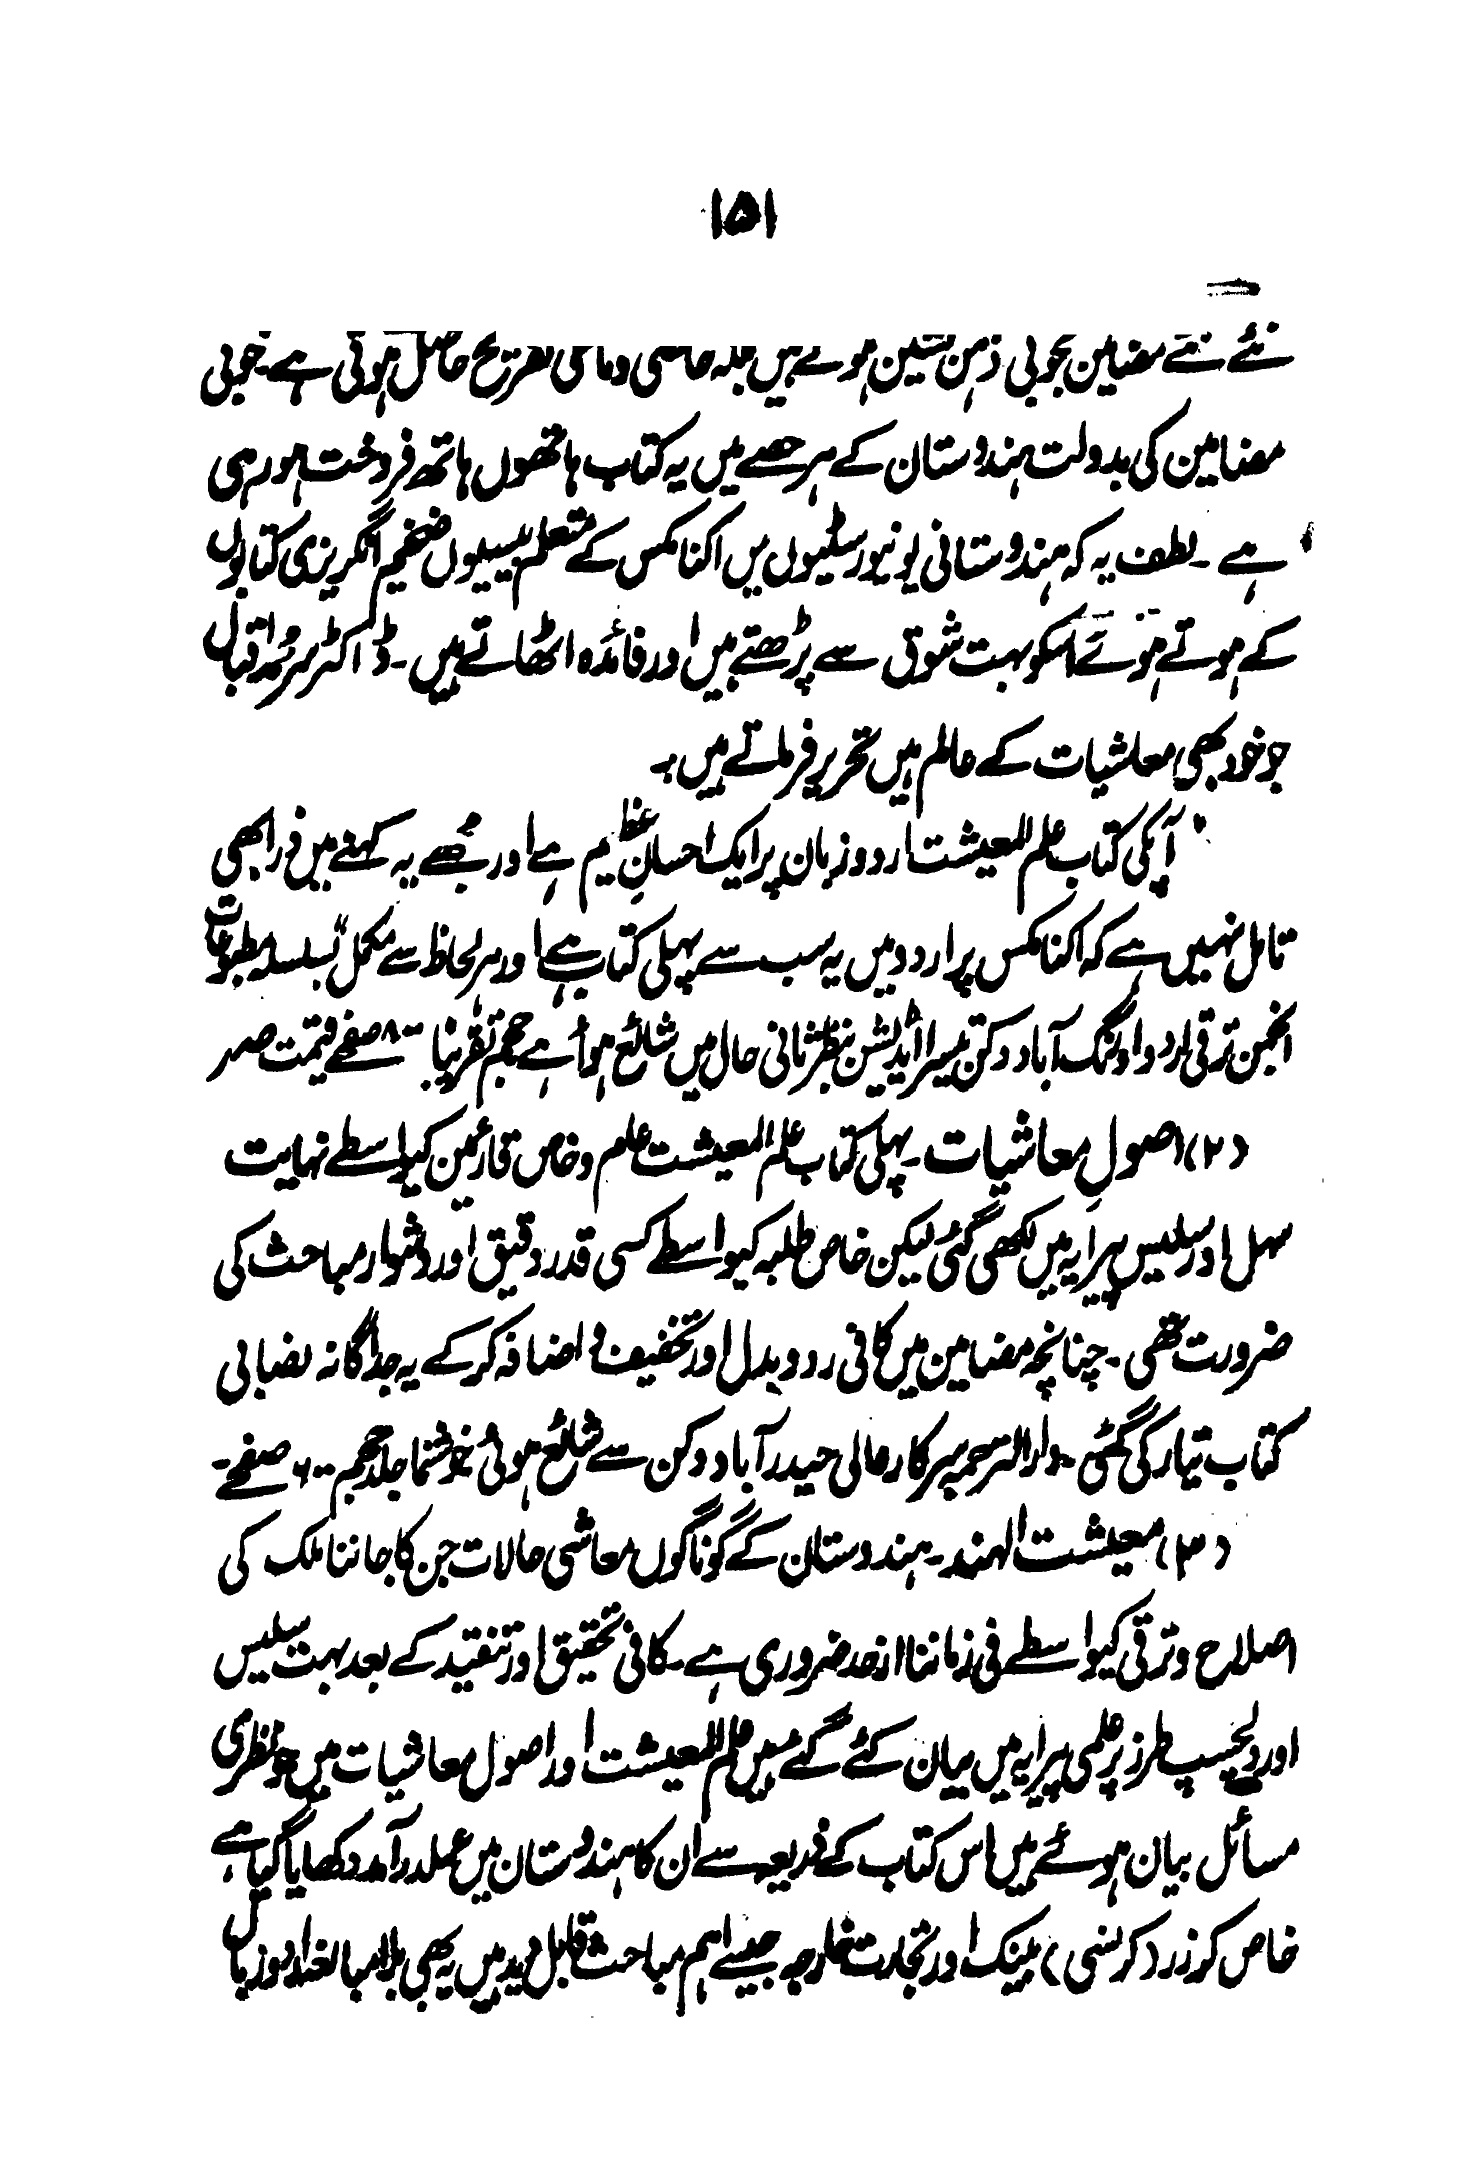 ۱۵۱
نئے نئے مضامین بخوبی ذہن نشین ہوتے ہیں بلکہ خاصی دماغی تفریح حاصل ہوتی ہے۔ خوبی
مضامین کی بدولت ہندوستان کے ہر حصے میں یہ کتاب ہاتھوں ہاتھ فروخت ہو رہی
ہے۔ لطف یہ کہ ہندوستانی یونیورسٹیوں میں اکنامکس کے متعلم بیسیوں ضخیم انگریزی کتابوں
کے ہوتے ہوئے اسکو بہت شوق سے پڑھتے ہیں اور فائدہ اٹھاتے ہیں۔ ڈاکٹر سر محمد اقبال
جو خود بھی معاشیات کے عالم ہیں تحریر فرماتے ہیں :۔
"آپکی کتاب علم المعیشت اردو زبان پر ایک احسانِ عظیم ہے اور مجھے یہ کہنے میں ذرا بھی
تامل نہیں ہے کہ اکنامکس پر اردو میں یہ سب سے پہلی کتاب ہے اور ہر لحاظ سے مکمل" بسلسلہ مطبوعات
انجمن ترقی اردو اورنگ آباد دکن تیسرا ایڈیشن بنظر ثانی حال میں شائع ہوا ہے حجم تقریباً ۸۰۰ صفحے قیمت صہ
(۲) اصولِ معاشیات۔ پہلی کتاب علم المعیشت عام و خاص قارئین کیواسطے نہایت
سہل اور سلیس پیرایہ میں لکھی گئی لیکن خاص طلبہ کیواسطے کسی قدر دقیق اور دشوار مباحث کی
ضرورت تھی۔ چنانچہ مضامین میں کافی ردوبدل اور تخفیف و اضافہ کر کے یہ جداگانہ نصابی
کتاب تیار کی گئی۔ دارالترجمہ سرکار عالی حیدرآباد دکن سے شائع ہوئی خوشنما جلد حجم ۶۰۰ صفحے۔
(۳) معیشت الہند۔ ہندوستان کے گوناگوں معاشی حالات جن کا جاننا ملک کی
اصلاح و ترقی کیواسطے فی زماننا ازحد ضروری ہے۔ کافی تحقیق اور تنقید کے بعد بہت سلیس
اور دلچسپ طرز پر علمی پیرایہ میں بیان کئے گئے ہیں علم المعیشت اور اصول معاشیات میں جو نظری
مسائل بیان ہوئے ہیں اس کتاب کے ذریعہ سے ان کا ہندوستان میں عملدرآمد دکھایا گیا ہے
خاص کر زر (کرنسی) بینک اور تجارت خارجہ جیسے اہم مباحث قابل دید ہیں یہ بھی بلا مبالغہ اردو زبان